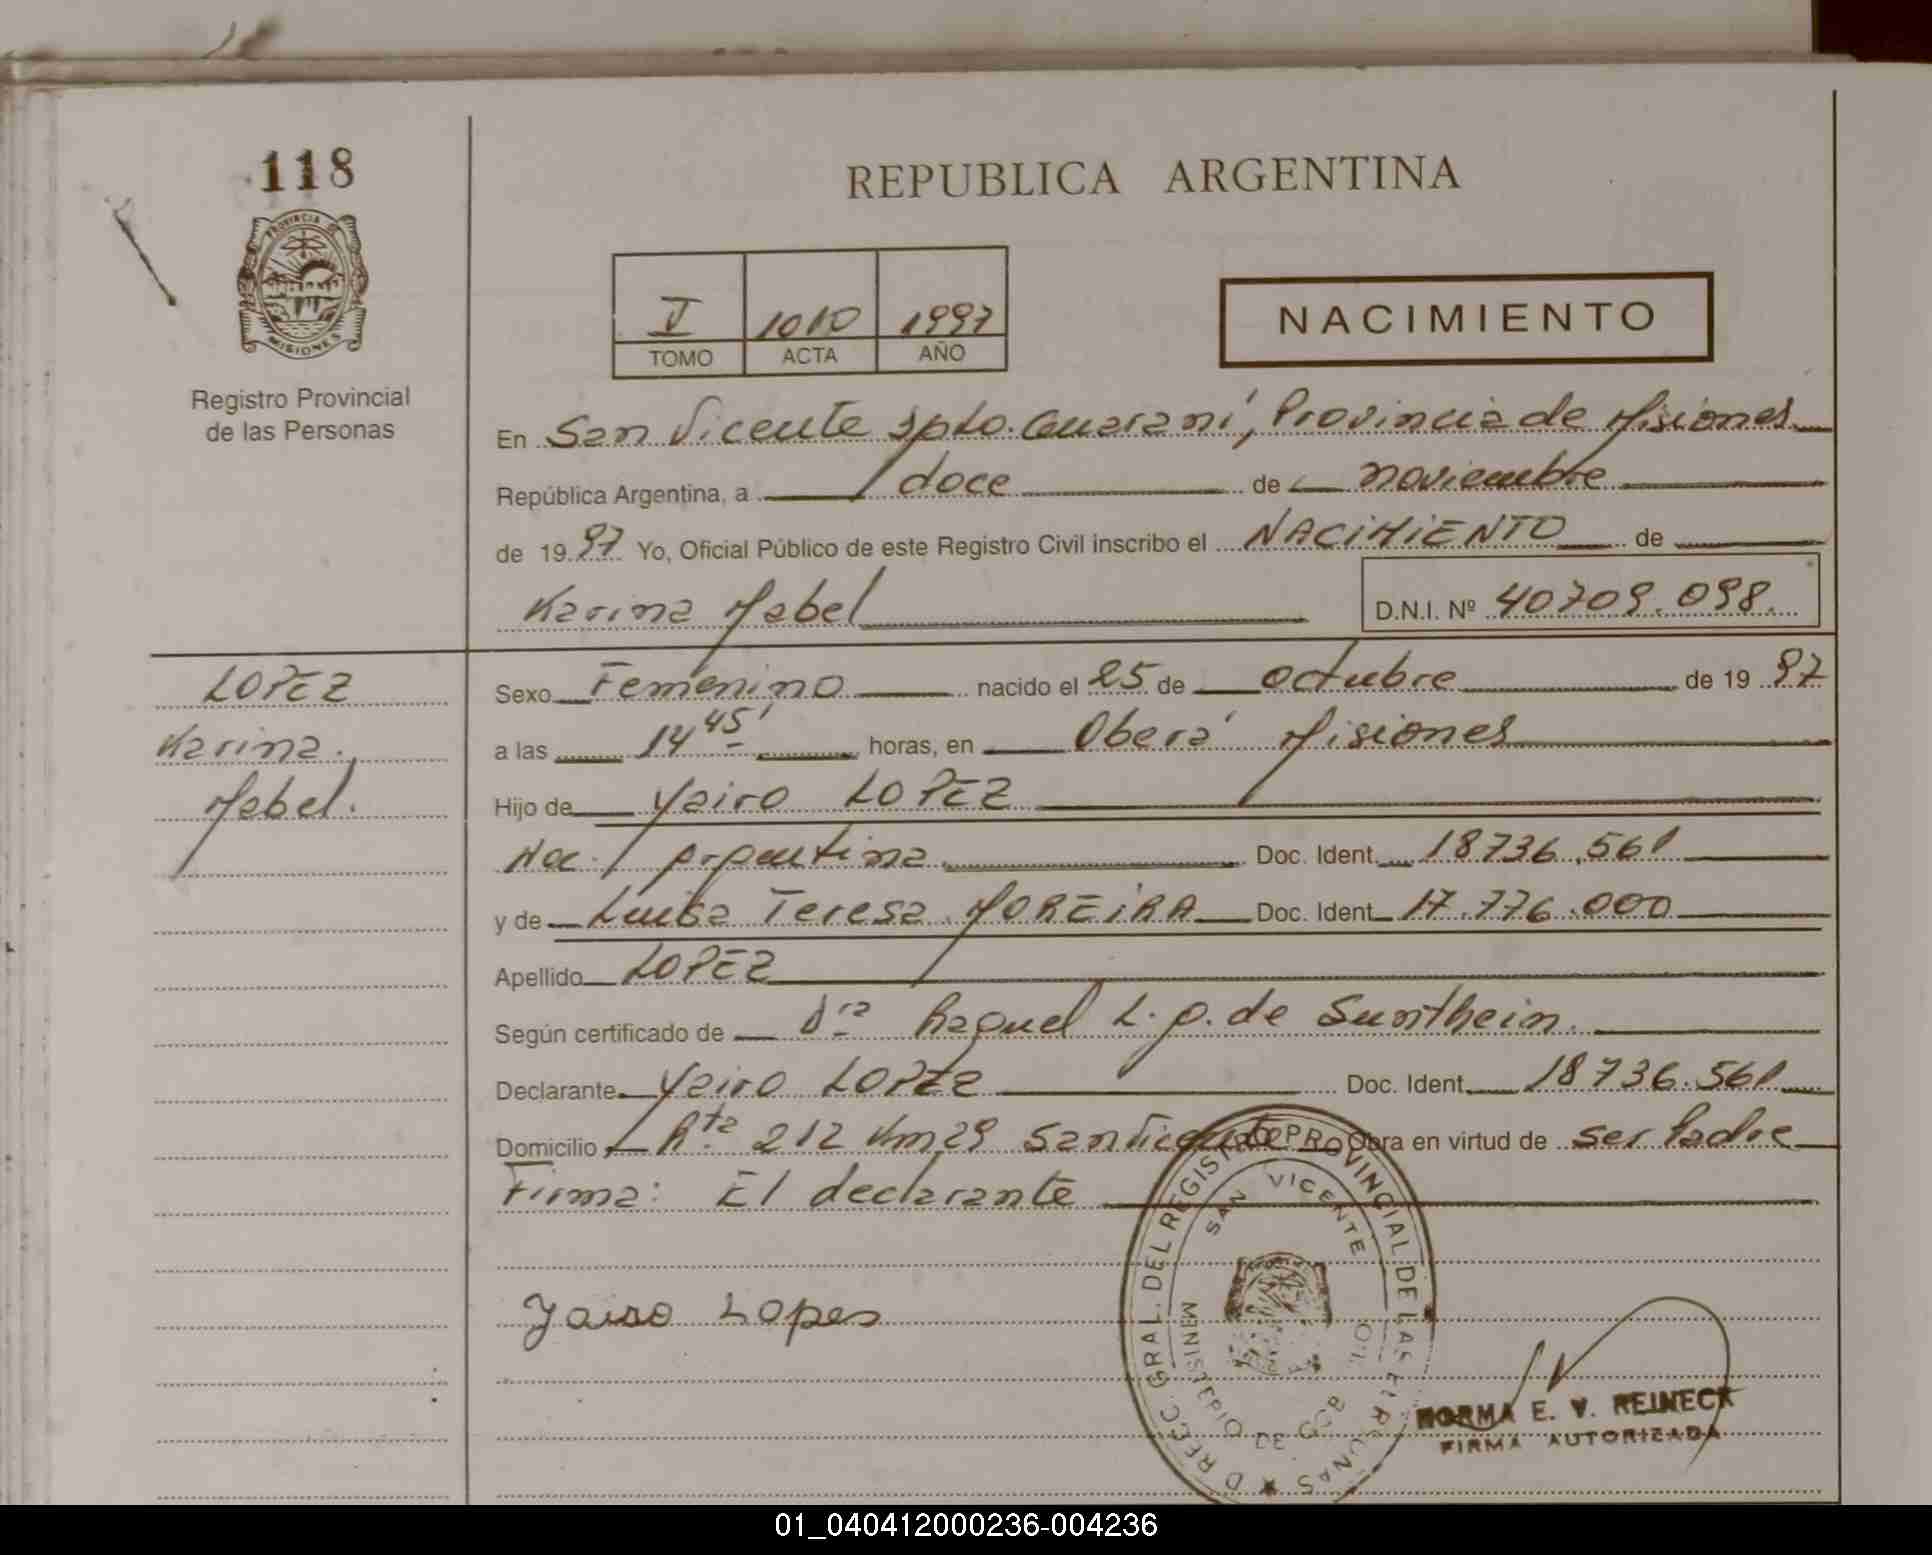 118
PROVINCIA DE
MISIONES
Registro Provincial
de las Personas
REPUBLICA ARGENTINA
V 1010 1997
TOMO ACTA AÑO
NACIMIENTO
En San Vicente Dpto. Guaraní, Provincia de Misiones
República Argentina, a doce de noviembre
de 1997 Yo, Oficial Público de este Registro Civil inscribo el NACIMIENTO de
Karina Mabel D.N.I. Nº 40709.098.
LOPEZ
Karina
Mabel.
Sexo Femenino nacido el 25 de octubre de 1997
a las 14 45' horas, en Oberá Misiones
Hijo de Yairo LOPEZ
Nac. Argentina Doc. Ident. 18736.561
y de Luisa Teresa MOREIRA Doc. Ident. 17.776.000
Apellido LOPEZ
Según certificado de Dra Raquel L. p. de Sunthein.
Declarante Yairo LOPEZ Doc. Ident. 18736.561
Domicilio Rta 212 Km 29 San Vicente Obra en virtud de ser Padre
Firma: El declarante
Jairo Lopes
DIRECC. GRAL. DEL REGISTRO PROVINCIAL DE LAS PERSONAS
SAN VICENTE
MINISTERIO DE GOB.
NORMA E. V. REINECK
FIRMA AUTORIZADA
01_040412000236-004236